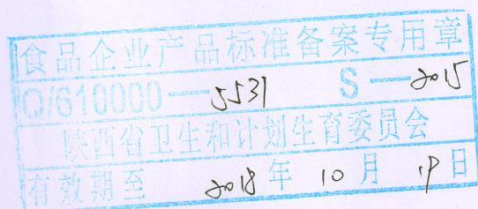 食品企业产品标准备案专用章
Q/610000—5531 S—2015
陕西省卫生和计划生育委员会
有效期至 2018年10月19日